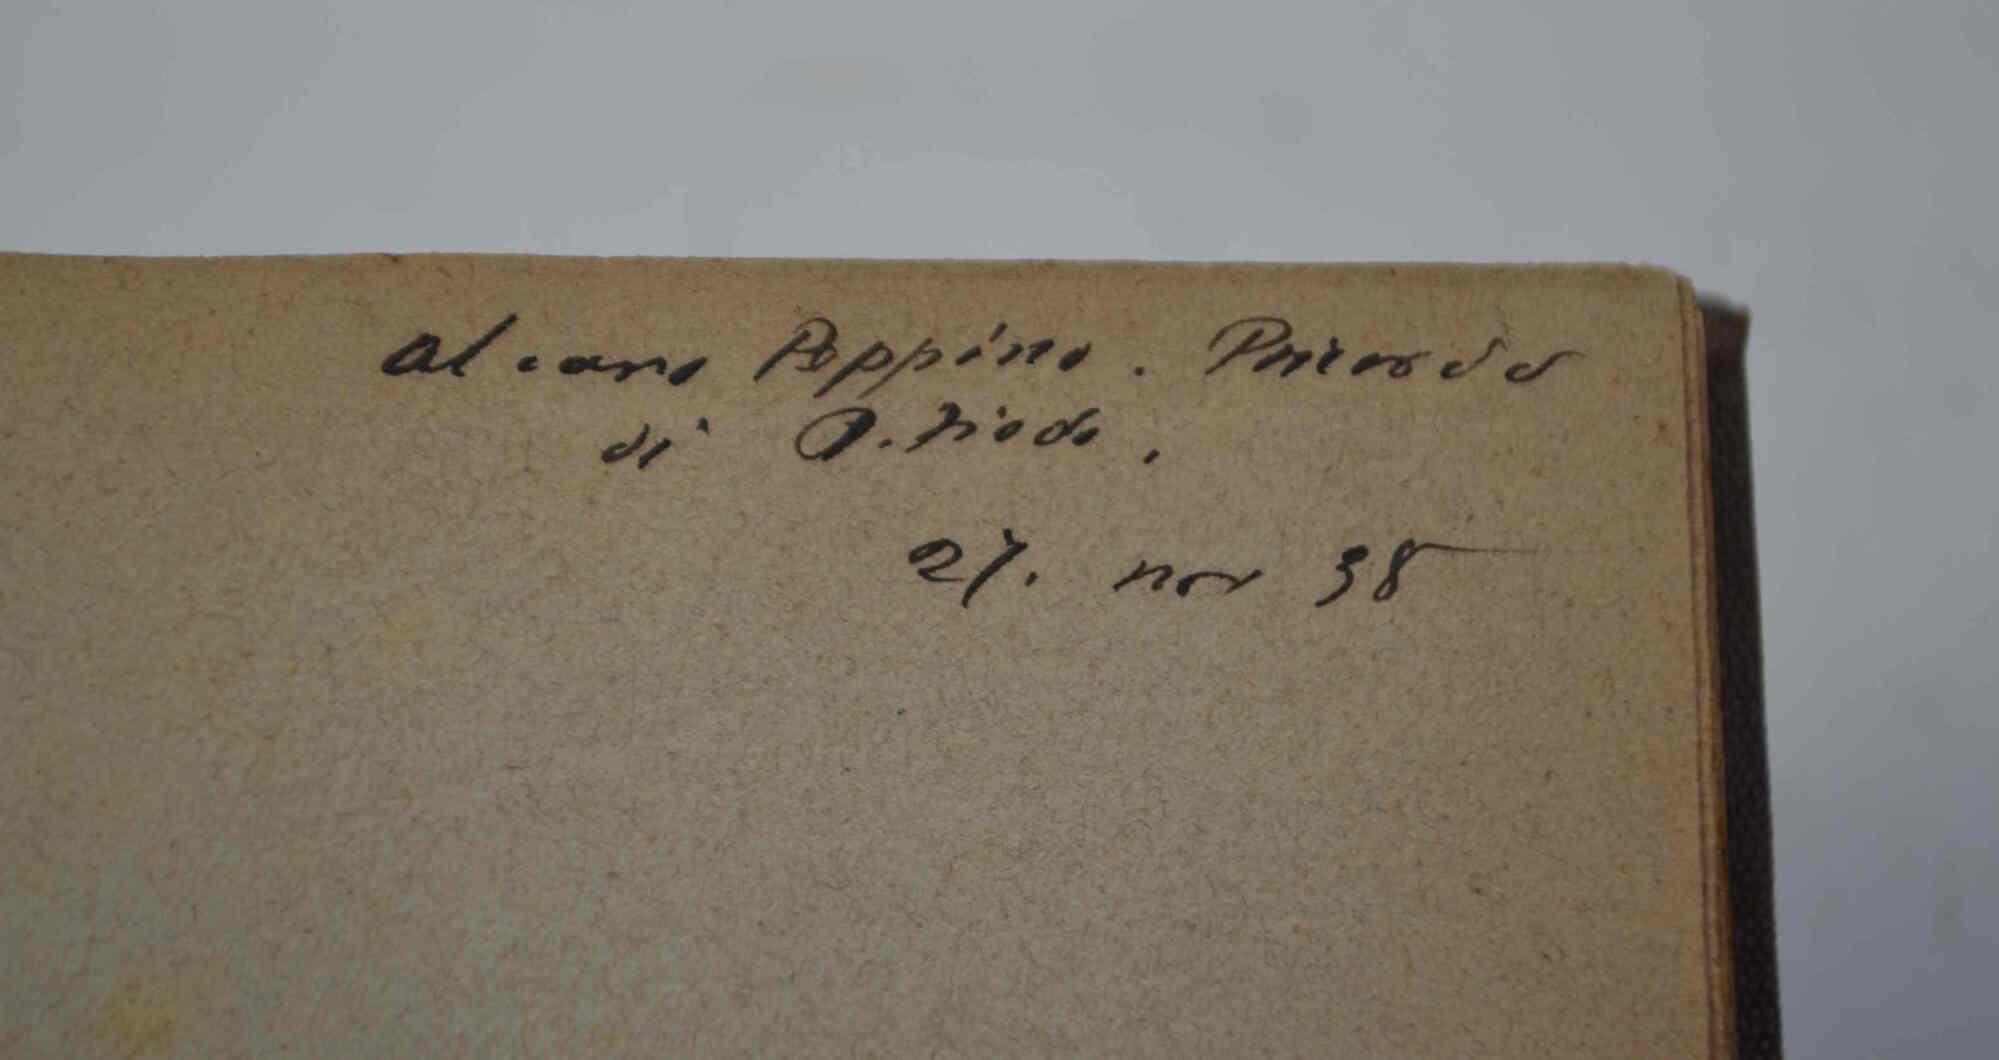 al caro Peppino. Ricordo
di
27. nov 38